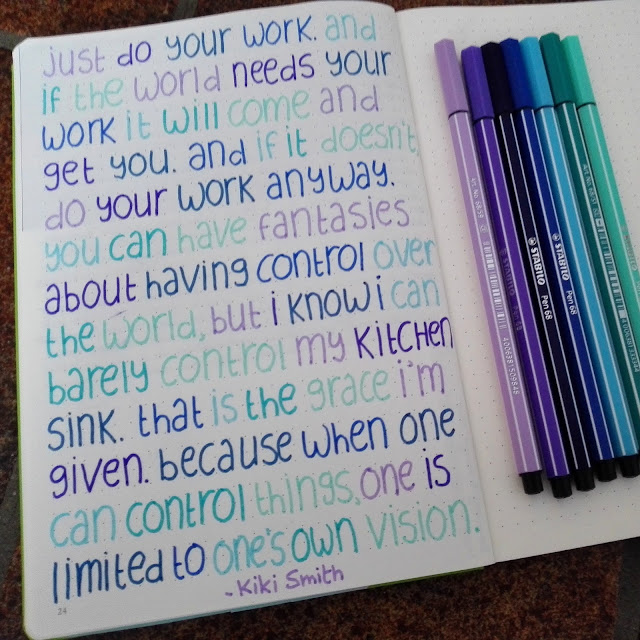 just do your work. and
if the world needs your
work it will come and
get you. and if it doesn't,
do your work anyway.
you can have fantasies
about having control over
the world, but i know i can
barely control my KITCHEN
sink. that is the grace i'm
given. because when one
can control things, one is
limited to one's own vision.
- Kiki Smith
24
STABILO Pen 68
STABILO Pen 68